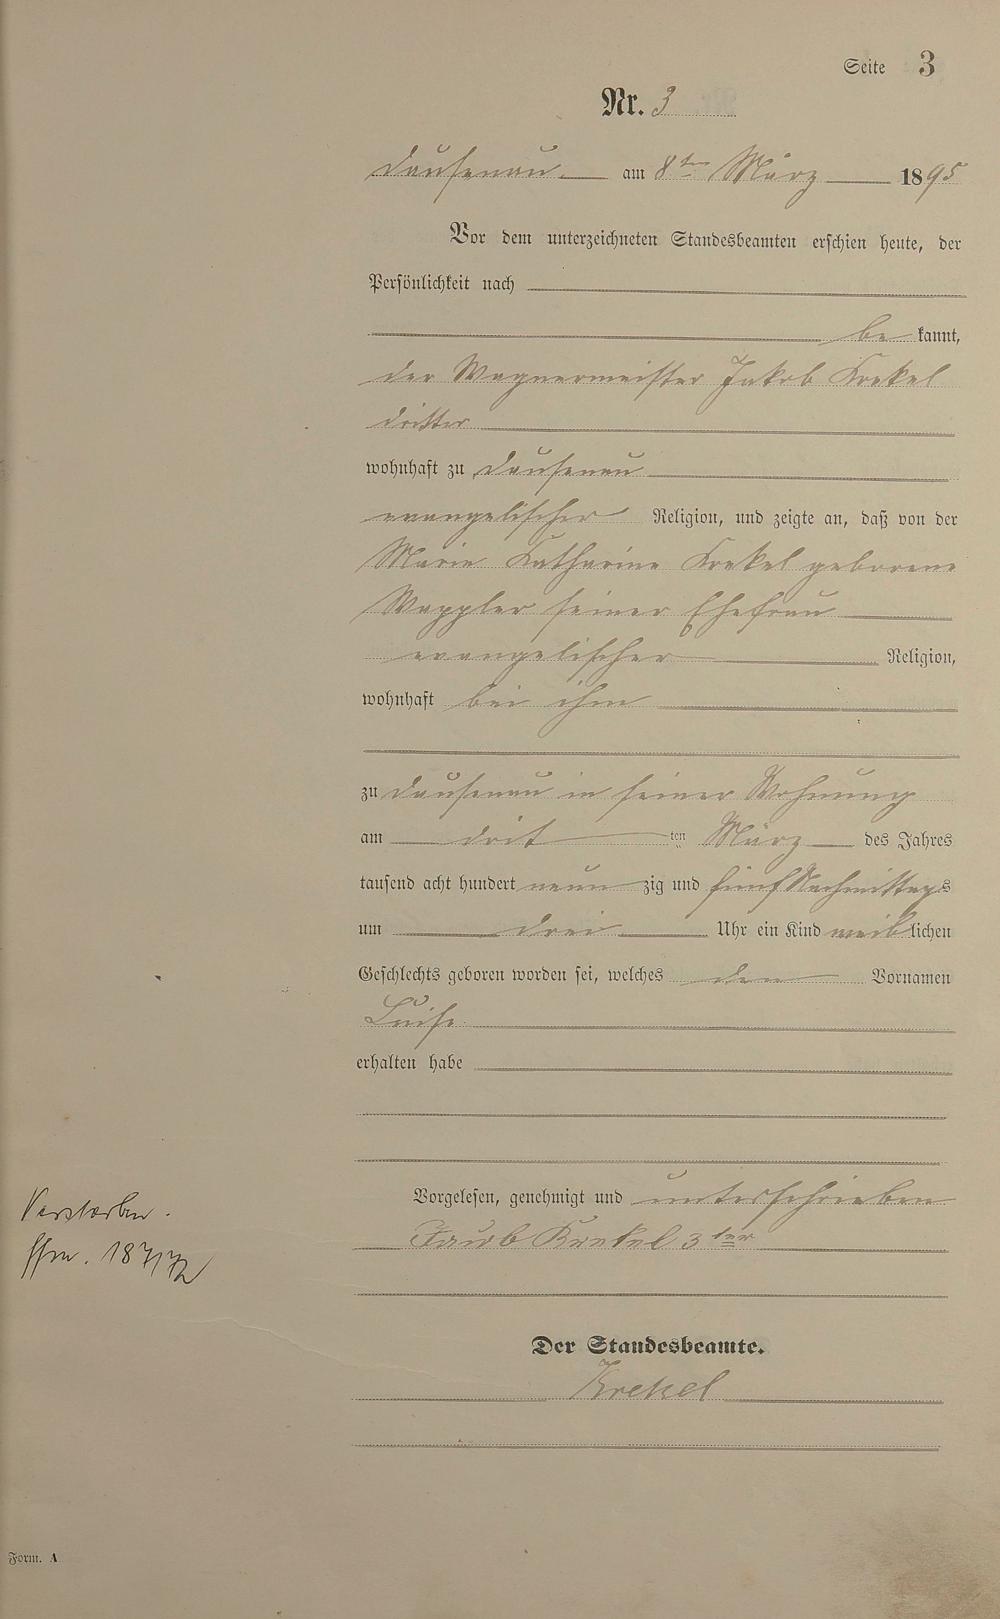 Seite 3
Nr. 3
Dausenau am 8ten März 1895
Vor dem unterzeichneten Standesbeamten erschien heute, der
Persönlichkeit nach
be kannt,
der Wagnermeister Jakob Krekel
dritter
wohnhaft zu Dausenau
evangelischer Religion, und zeigte an, daß von der
Marie Katharine Krekel geborene
Wappler seiner Ehefrau
evangelischer Religion,
wohnhaft bei ihm
zu Dausenau in seiner Wohnung
am drit ten März des Jahres
tausend acht hundert neun zig und fünf Nachmittags
um drei Uhr ein Kind weiblichen
Geschlechts geboren worden sei, welches den Vornamen
Luise
erhalten habe
Vorgelesen, genehmigt und unterschrieben
Jacob Krekel 3ter
Der Standesbeamte.
Krekel
Verstorben.
Ffm. 187/72
Form. A